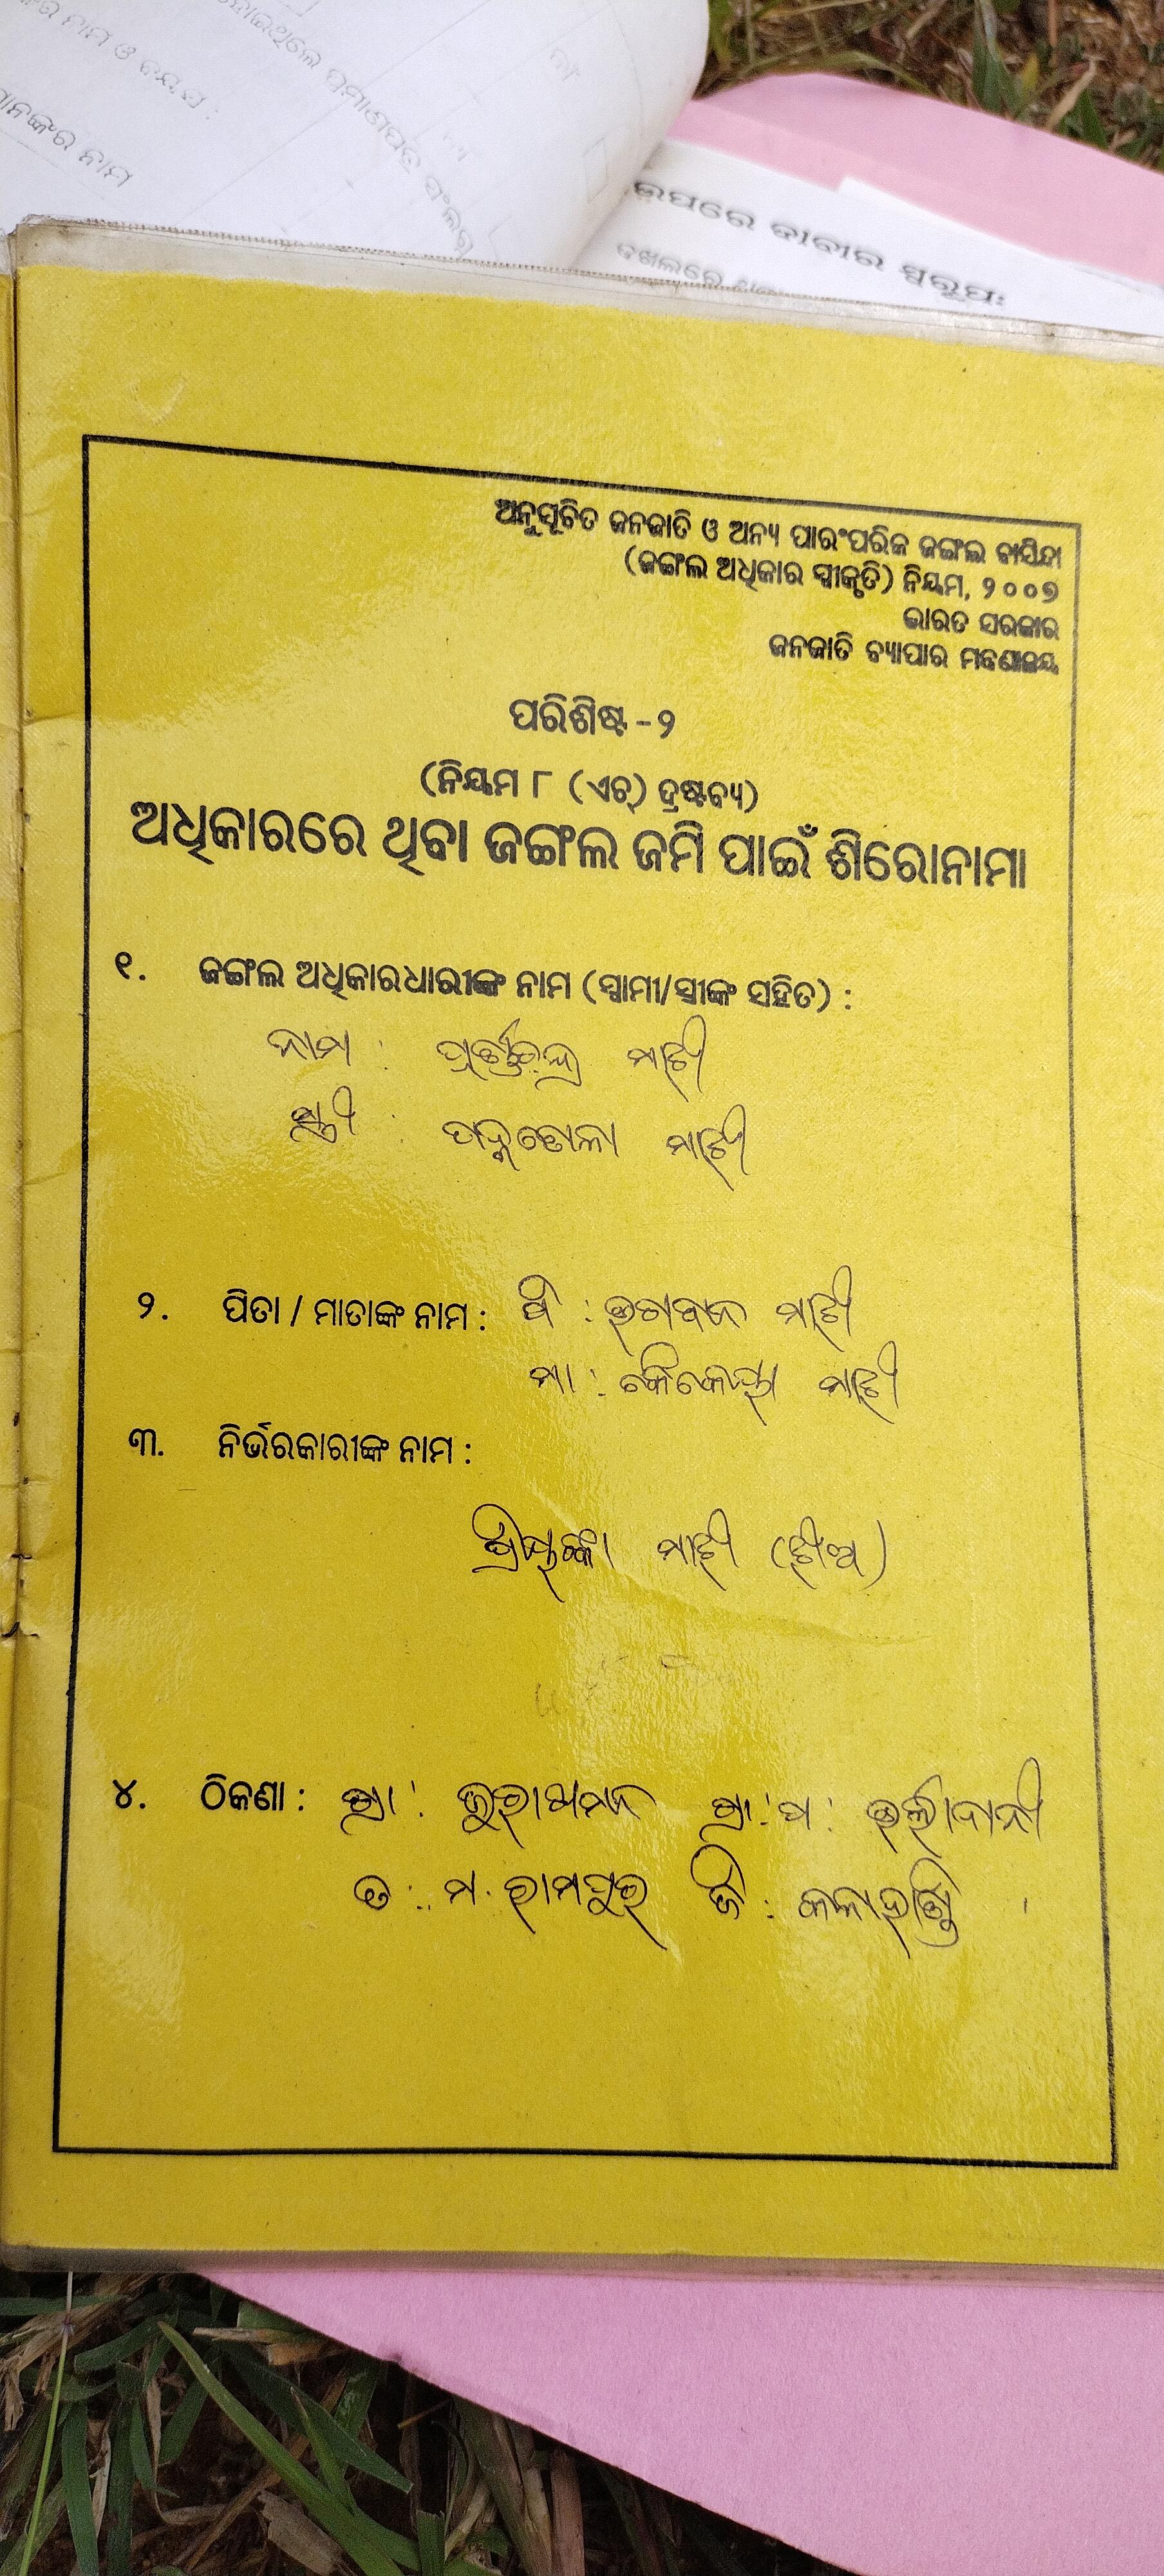 ଙ୍କର ନାମ ଓ ବୟସ :
ମାନଙ୍କର ନାମ
ପ୍ରମାଣପତ୍ର ସଂଲଗ୍ନ
ଉପରେ ଦାବୀର ସ୍ୱରୂପଃ
ଦଖଲରେ
ଅନୁସୂଚିତ ଜନଜାତି ଓ ଅନ୍ୟ ପାରଂପରିକ ଜଙ୍ଗଲ ବାସିନ୍ଦା
(ଜଙ୍ଗଲ ଅଧିକାର ସ୍ୱୀକୃତି) ନିୟମ, ୨୦୦୭
ଭାରତ ସରକାର
ଜନଜାତି ବ୍ୟାପାର ମନ୍ତ୍ରଣାଳୟ
ପରିଶିଷ୍ଟ -୨
(ନିୟମ ୮ (ଏଚ୍) ଦ୍ରଷ୍ଟବ୍ୟ)
ଅଧିକାରରେ ଥିବା ଜଙ୍ଗଲ ଜମି ପାଇଁ ଶିରୋନାମା
୧. ଜଙ୍ଗଲ ଅଧିକାରଧାରୀଙ୍କ ନାମ (ସ୍ୱାମୀ/ସ୍ତ୍ରୀଙ୍କ ସହିତ) :
ନାମ : ମାଝୀ
ସ୍ତ୍ରୀ : ମାଝୀ
୨. ପିତା / ମାତାଙ୍କ ନାମ : ପି : ଭଗବାନ ମାଝୀ
ମା : କୈକେୟୀ ମାଝୀ
୩. ନିର୍ଭରକାରୀଙ୍କ ନାମ :
ପ୍ରିୟଙ୍କା ମାଝୀ (ଝିଅ)
୪. ଠିକଣା : ଗ୍ରା : ଗ୍ରା : ପ :
ତ : ମ. ରାମପୁର ଜି : କଳାହାଣ୍ଡି